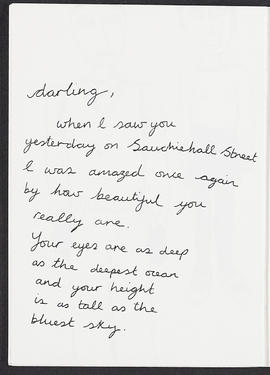 darling,
when I saw you
yesterday on Sauchiehall Street
I was amazed once again
by how beautiful you
really are.
Your eyes are as deep
as the deepest ocean
and your height
is as tall as the
bluest sky.